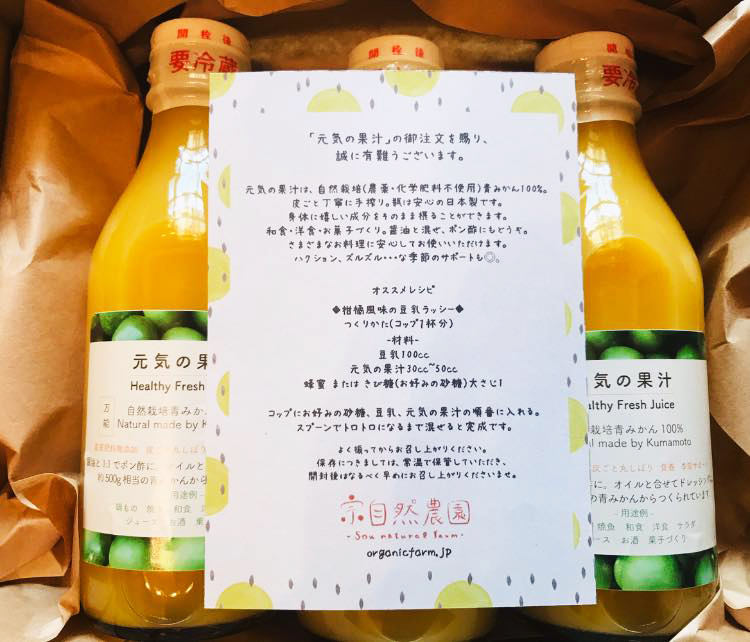 開栓後
要冷蔵
開栓後
開栓後
要冷蔵
「元気の果汁」の御注文を賜り、
誠に有難うございます。
元気の果汁は、自然栽培(農薬・化学肥料不使用)青みかん100%。
皮ごと丁寧に手搾り。瓶は安心の日本製です。
身体に嬉しい成分をそのまま摂ることができます。
和食・洋食・お菓子づくり。醤油と混ぜ、ポン酢にもどうぞ。
さまざまなお料理に安心してお使いいただけます。
ハクション、ズルズル・・・な季節のサポートも◎。
オススメレシピ
◆柑橘風味の豆乳ラッシー◆
つくりかた(コップ1杯分)
-材料-
豆乳100cc
元気の果汁30cc~50cc
蜂蜜 または きび糖(お好みの砂糖)大さじ1
コップにお好みの砂糖、豆乳、元気の果汁の順番に入れる。
スプーンでトロトロになるまで混ぜると完成です。
よく振ってからお召し上がりください。
保存につきましては、常温で保管していただき、
開封後はなるべく早めにお召し上がりくださいませ。
宗自然農園
-Sou natural Farm-
organicfarm.jp
元気の果
Healthy Fresh
万能
自然栽培青みかん
Natural made by K
皮ごと丸しぼり
醤油と1:1でポン酢に。オイルと
約500g相当の青みかんから
-用途例-
鍋もの 焼
ジュース お酒 菓
気の果汁
althy Fresh Juice
栽培青みかん100%
al made by Kumamoto
皮ごと丸しぼり
に。オイルと合せてドレッシング
の青みかんからつくられています
-用途例-
焼魚 和食 洋食 サラダ
ース お酒 菓子づくり